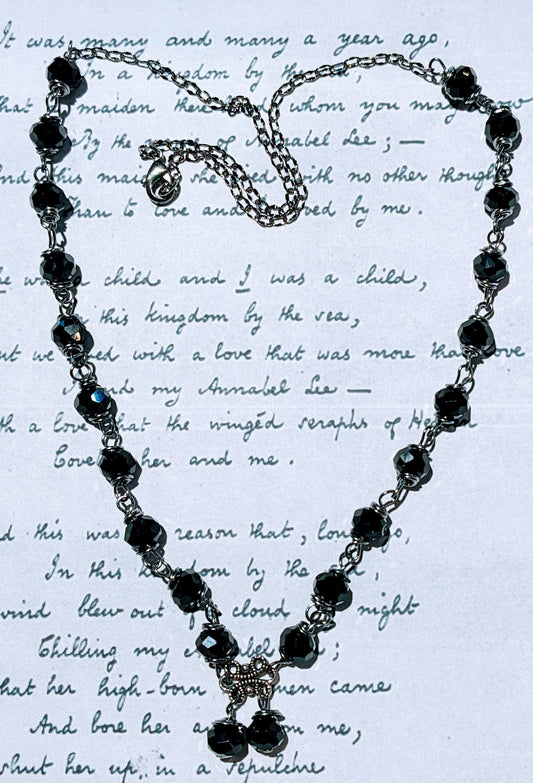 It was many and many a year ago,
In a kingdom by the
That maiden there whom you may know
By the of Annabel Lee; —
And this maiden she with no other thought
Than to love and by me.
She was a child and I was a child,
this kingdom by the sea,
But we with a love that was more than love
and my Annabel Lee —
With a love that the wingéd seraphs of Heaven
Coveted her and me.
And this was reason that, long ago,
In this kingdom by the
wind blew out of cloud night
Chilling my Annabel ;
That her high-born came
And bore her me,
shut her up in a sepulchre